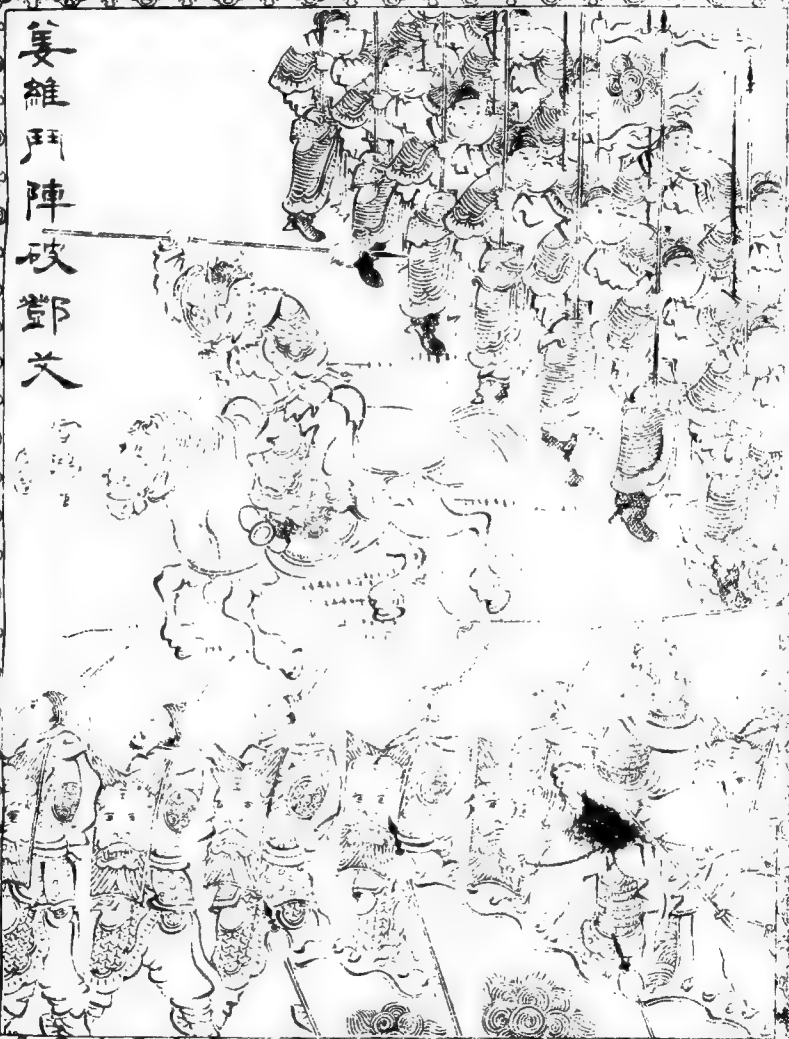 姜維鬥陣破鄧艾